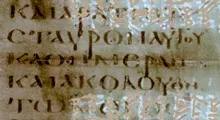 ΚΑΙΑΡΑΤΩΤΟΝ
ϹΤΑΥΡΟΝΑΥΤΟΥ
ΚΑΘΗΜΕΡΑΝ
ΚΑΙΑΚΟΛΟΥΘΙ
ΤΩ